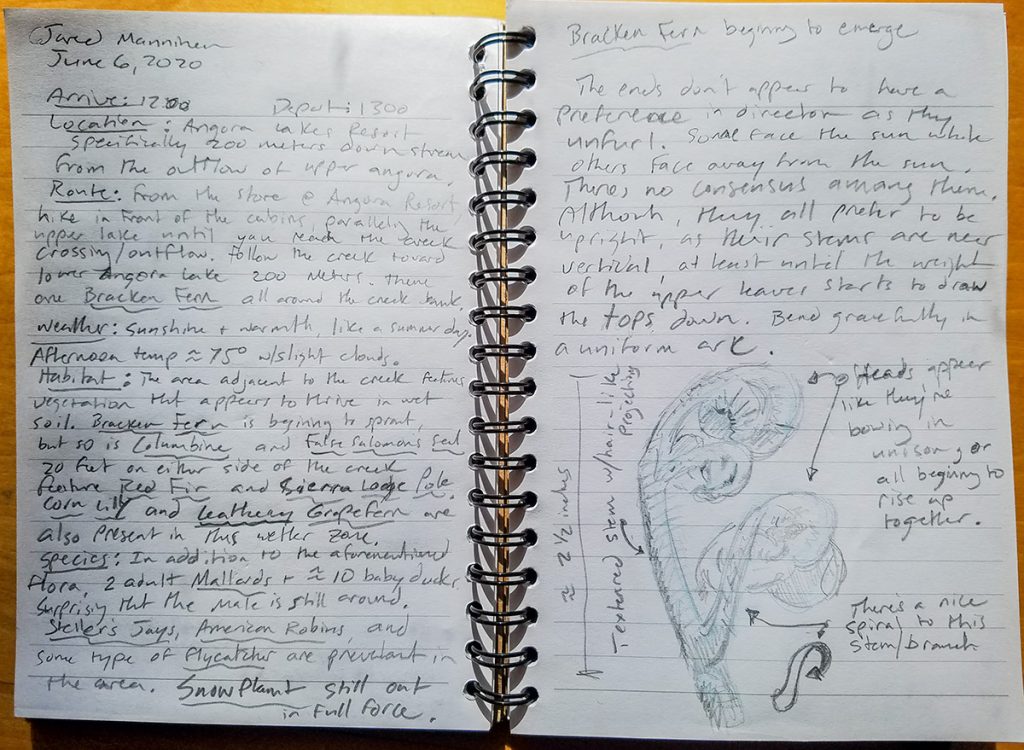 Jared Manninen
June 6, 2020
Arrive: 1200 Depart: 1300
Location: Angora Lakes Resort
Specifically 200 meters down stream
from the outflow of upper angora.
Route: From the store @ Angora Resort
hike in front of the cabins, paralleling the
upper lake until you reach the creek
crossing/outflow. Follow the creek toward
lower Angora Lake 200 meters. There
are Bracken Fern all around the creek bank.
Weather: Sunshine + warmth, like a summer day.
Afternoon temp ≈ 75° w/slight clouds.
Habitat: The area adjacent to the creek features
vegetation that appears to thrive in wet
soil. Bracken Fern is beginning to sprout,
but so is Columbine and False Salomons Seal
20 feet on either side of the creek
feature Red Fir and Sierra Lodge Pole.
Corn Lily and Leathery Grapefern are
also present in this wetter zone.
Species: In addition to the aforementioned
flora, 2 adult Mallards + ≈ 10 baby ducks.
Surprising that the male is still around.
Steller's Jays, American Robins, and
some type of flycatcher are prevelant in
the area. Snow Plant still out
in full force.
Bracken Fern beginning to emerge
The ends don't appear to have a
preference in direction as they
unfurl. Some face the sun while
others face away from the sun.
There's no consensus among them.
Although, they all prefer to be
upright, as their stems are near
vertical, at least until the weight
of the upper leaves starts to draw
the tops down. Bend gracefully in
a uniform arc.
≈ 2 1/2 inches
Textured stem w/hair-like
projecting
Heads appear
like they're
bowing in
unison, or
all beginning to
rise up
together.
There's a nice
spiral to this
stem/branch